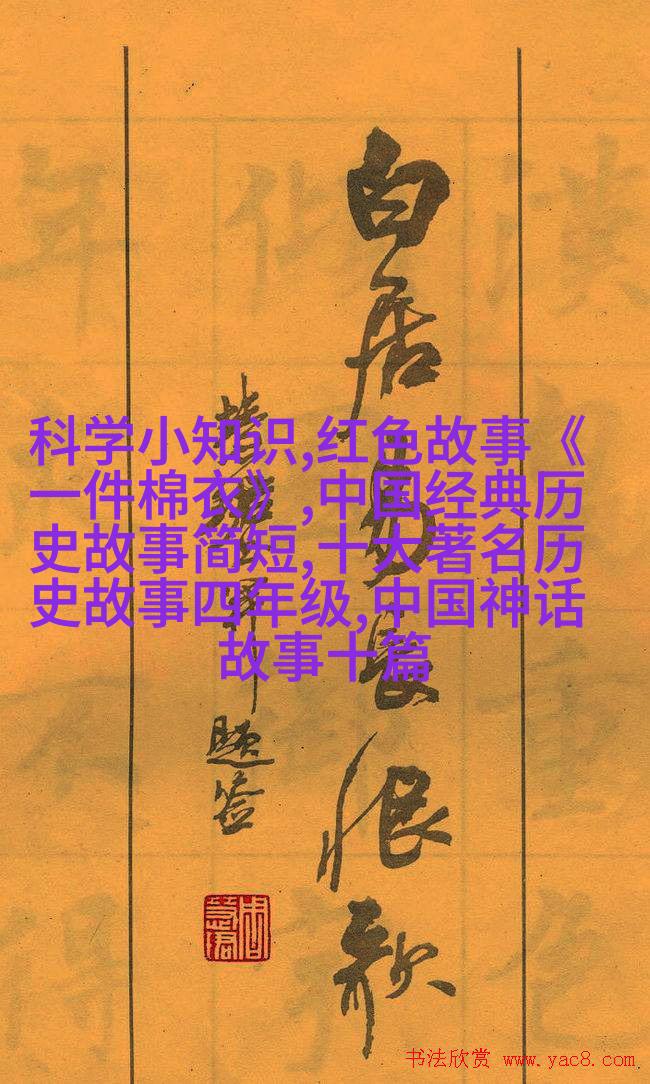 白居易長恨歌
题签
科学小知识,红色故事《
一件棉衣》,中国经典历
史故事简短,十大著名历
史故事四年级,中国神话
故事十篇
书法欣赏 www.yac8.com